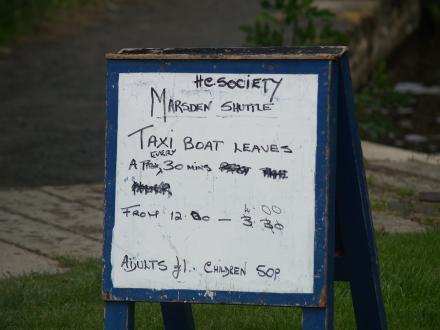 H.C. SOCIETY
MARSDEN SHUTTLE
TAXI BOAT LEAVES
EVERY
30 MINS
FROM 12.00 - 4.00
ADULTS £1. CHILDREN 50P